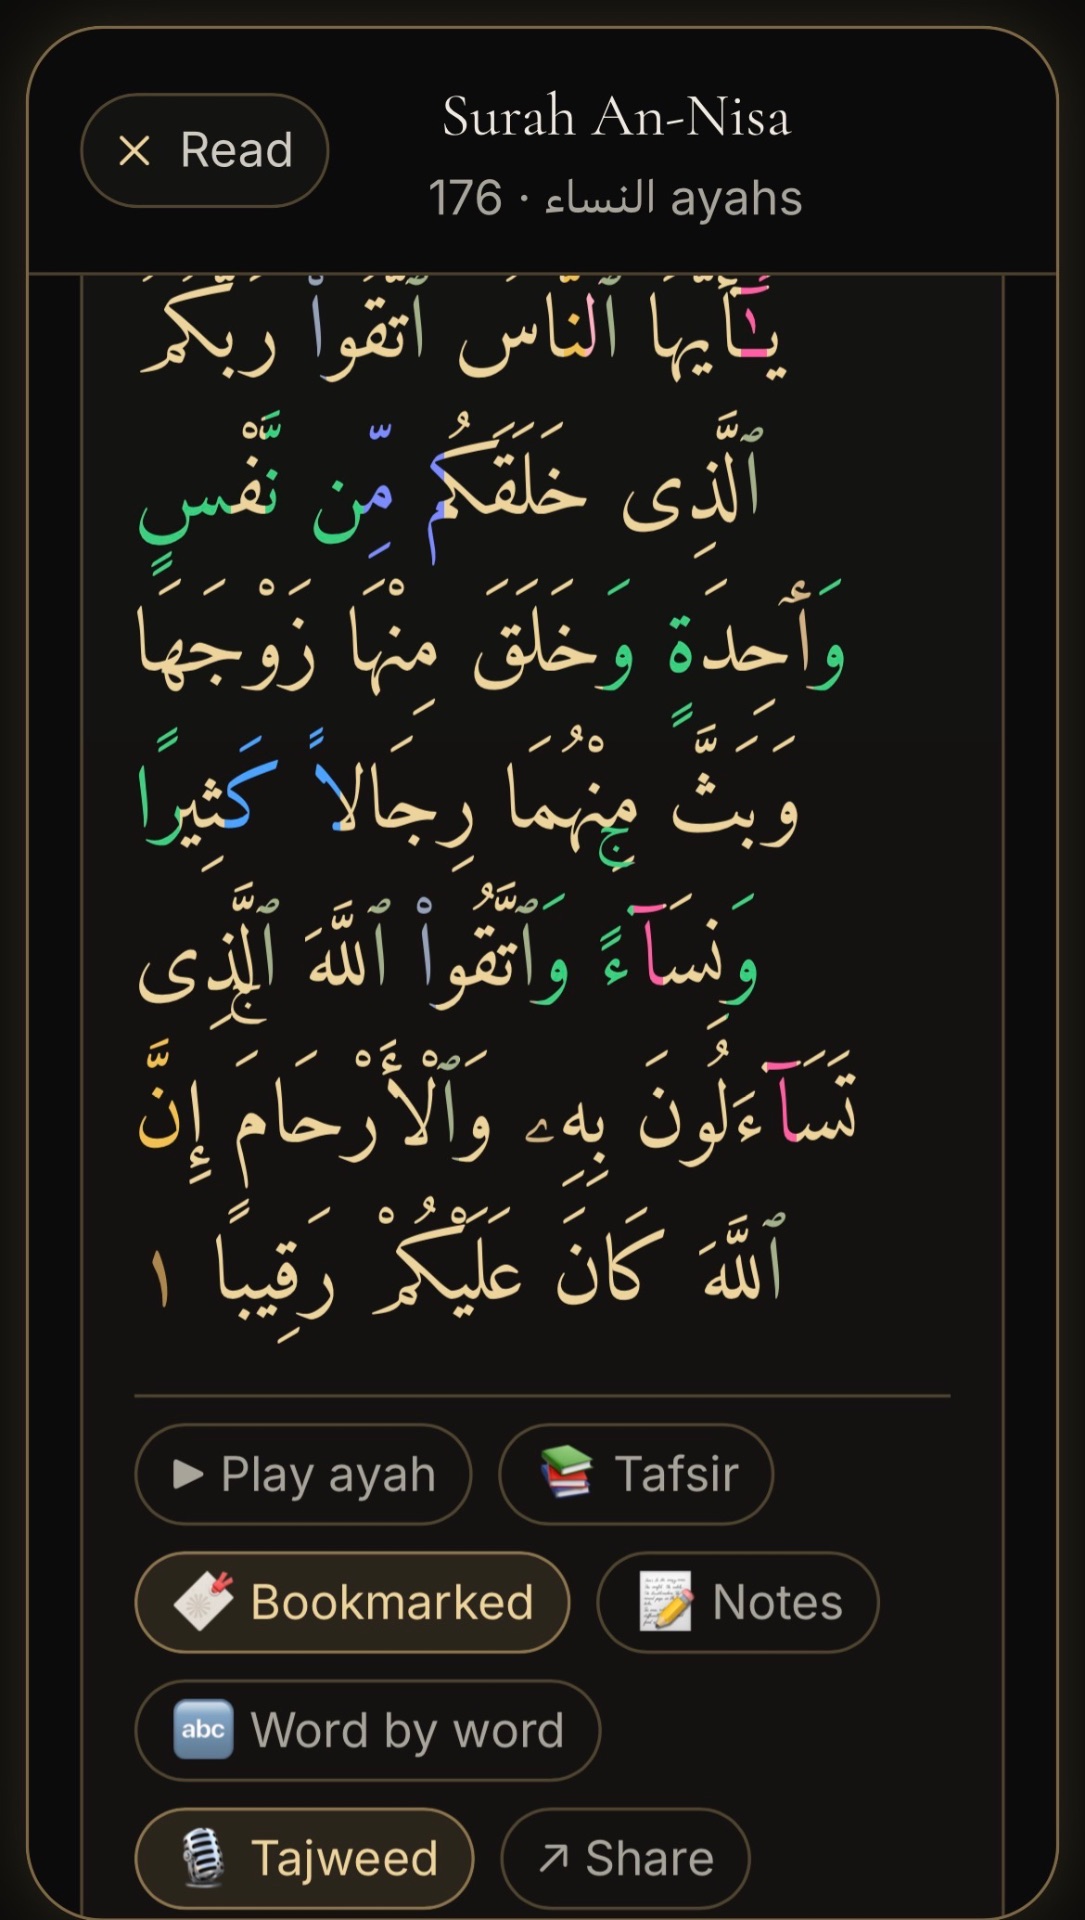 × Read
Surah An-Nisa
176 · النساء ayahs
يَـٰٓأَيُّهَا ٱلنَّاسُ ٱتَّقُوا۟ رَبَّكُمُ
ٱلَّذِى خَلَقَكُم مِّن نَّفْسٍ
وَأحِدَةٍ وَخَلَقَ مِنْهَا زَوْجَهَا
وَبَثَّ مِنْهُمَا رِجَالاً كَثِيرًا
وَنِسَآءً ۚ وَٱتَّقُوا۟ ٱللَّهَ ٱلَّذِى
تَسَآءَلُونَ بِهِۦ وَٱلْأَرْحَامَ ۚ إِنَّ
ٱللَّهَ كَانَ عَلَيْكُمْ رَقِيبًا ١
Play ayah
Tafsir
Bookmarked
Notes
abc Word by word
Tajweed
↗ Share